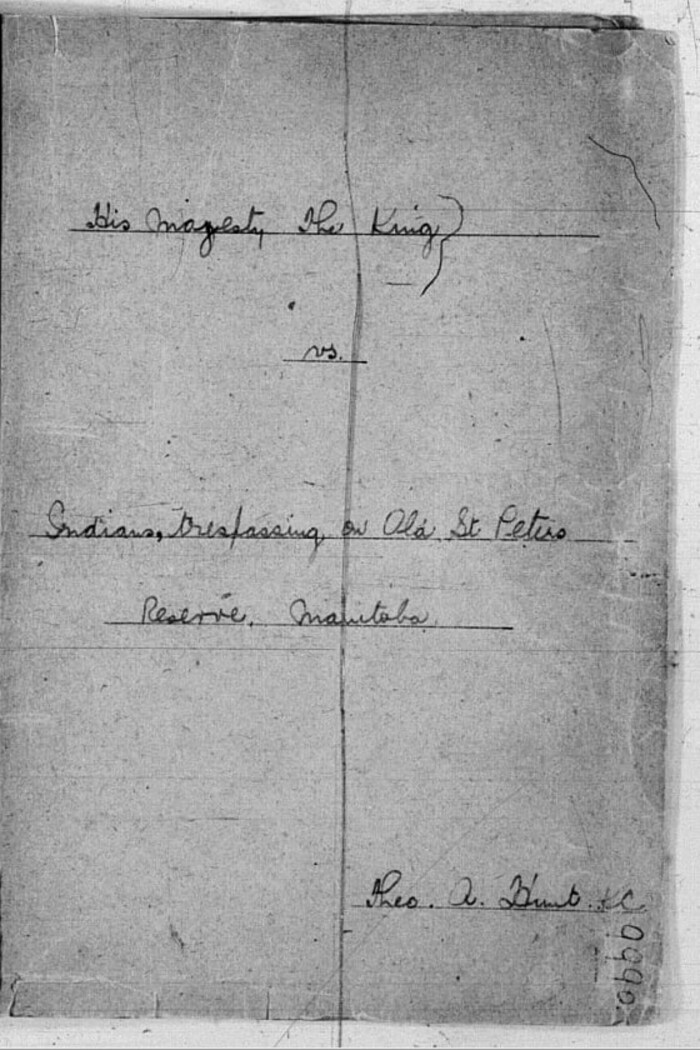 His Majesty The King }
vs.
Indians, trespassing on Old St Peters
Reserve, Manitoba
Theo. A. Hunt. K.C.